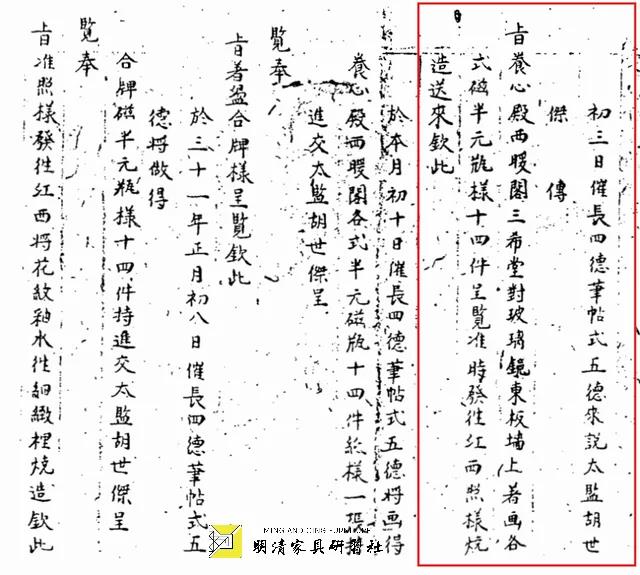 初三日催長四德筆帖式五德來說太監胡世
傑傳
旨養心殿西暖閣三希堂對玻璃鏡東板墻上著畫各
式磁半元瓶樣十四件呈覽准時發徃江西照樣燒
造送來欽此
於本月初十日催長四德筆帖式五德將畫得
養心殿西暖閣各式半元磁瓶十四件紙樣一張持
進交太監胡世傑呈
覽奉
旨著盪合牌樣呈覽欽此
於三十一年正月初八日催長四德筆帖式五
德將做得
合牌磁半元瓶樣十四件持進交太監胡世傑呈
覽奉
旨准照樣發徃江西將花紋釉水徃細緻裡燒造欽此
MING AND QING FURNITURE
明清家具研習社